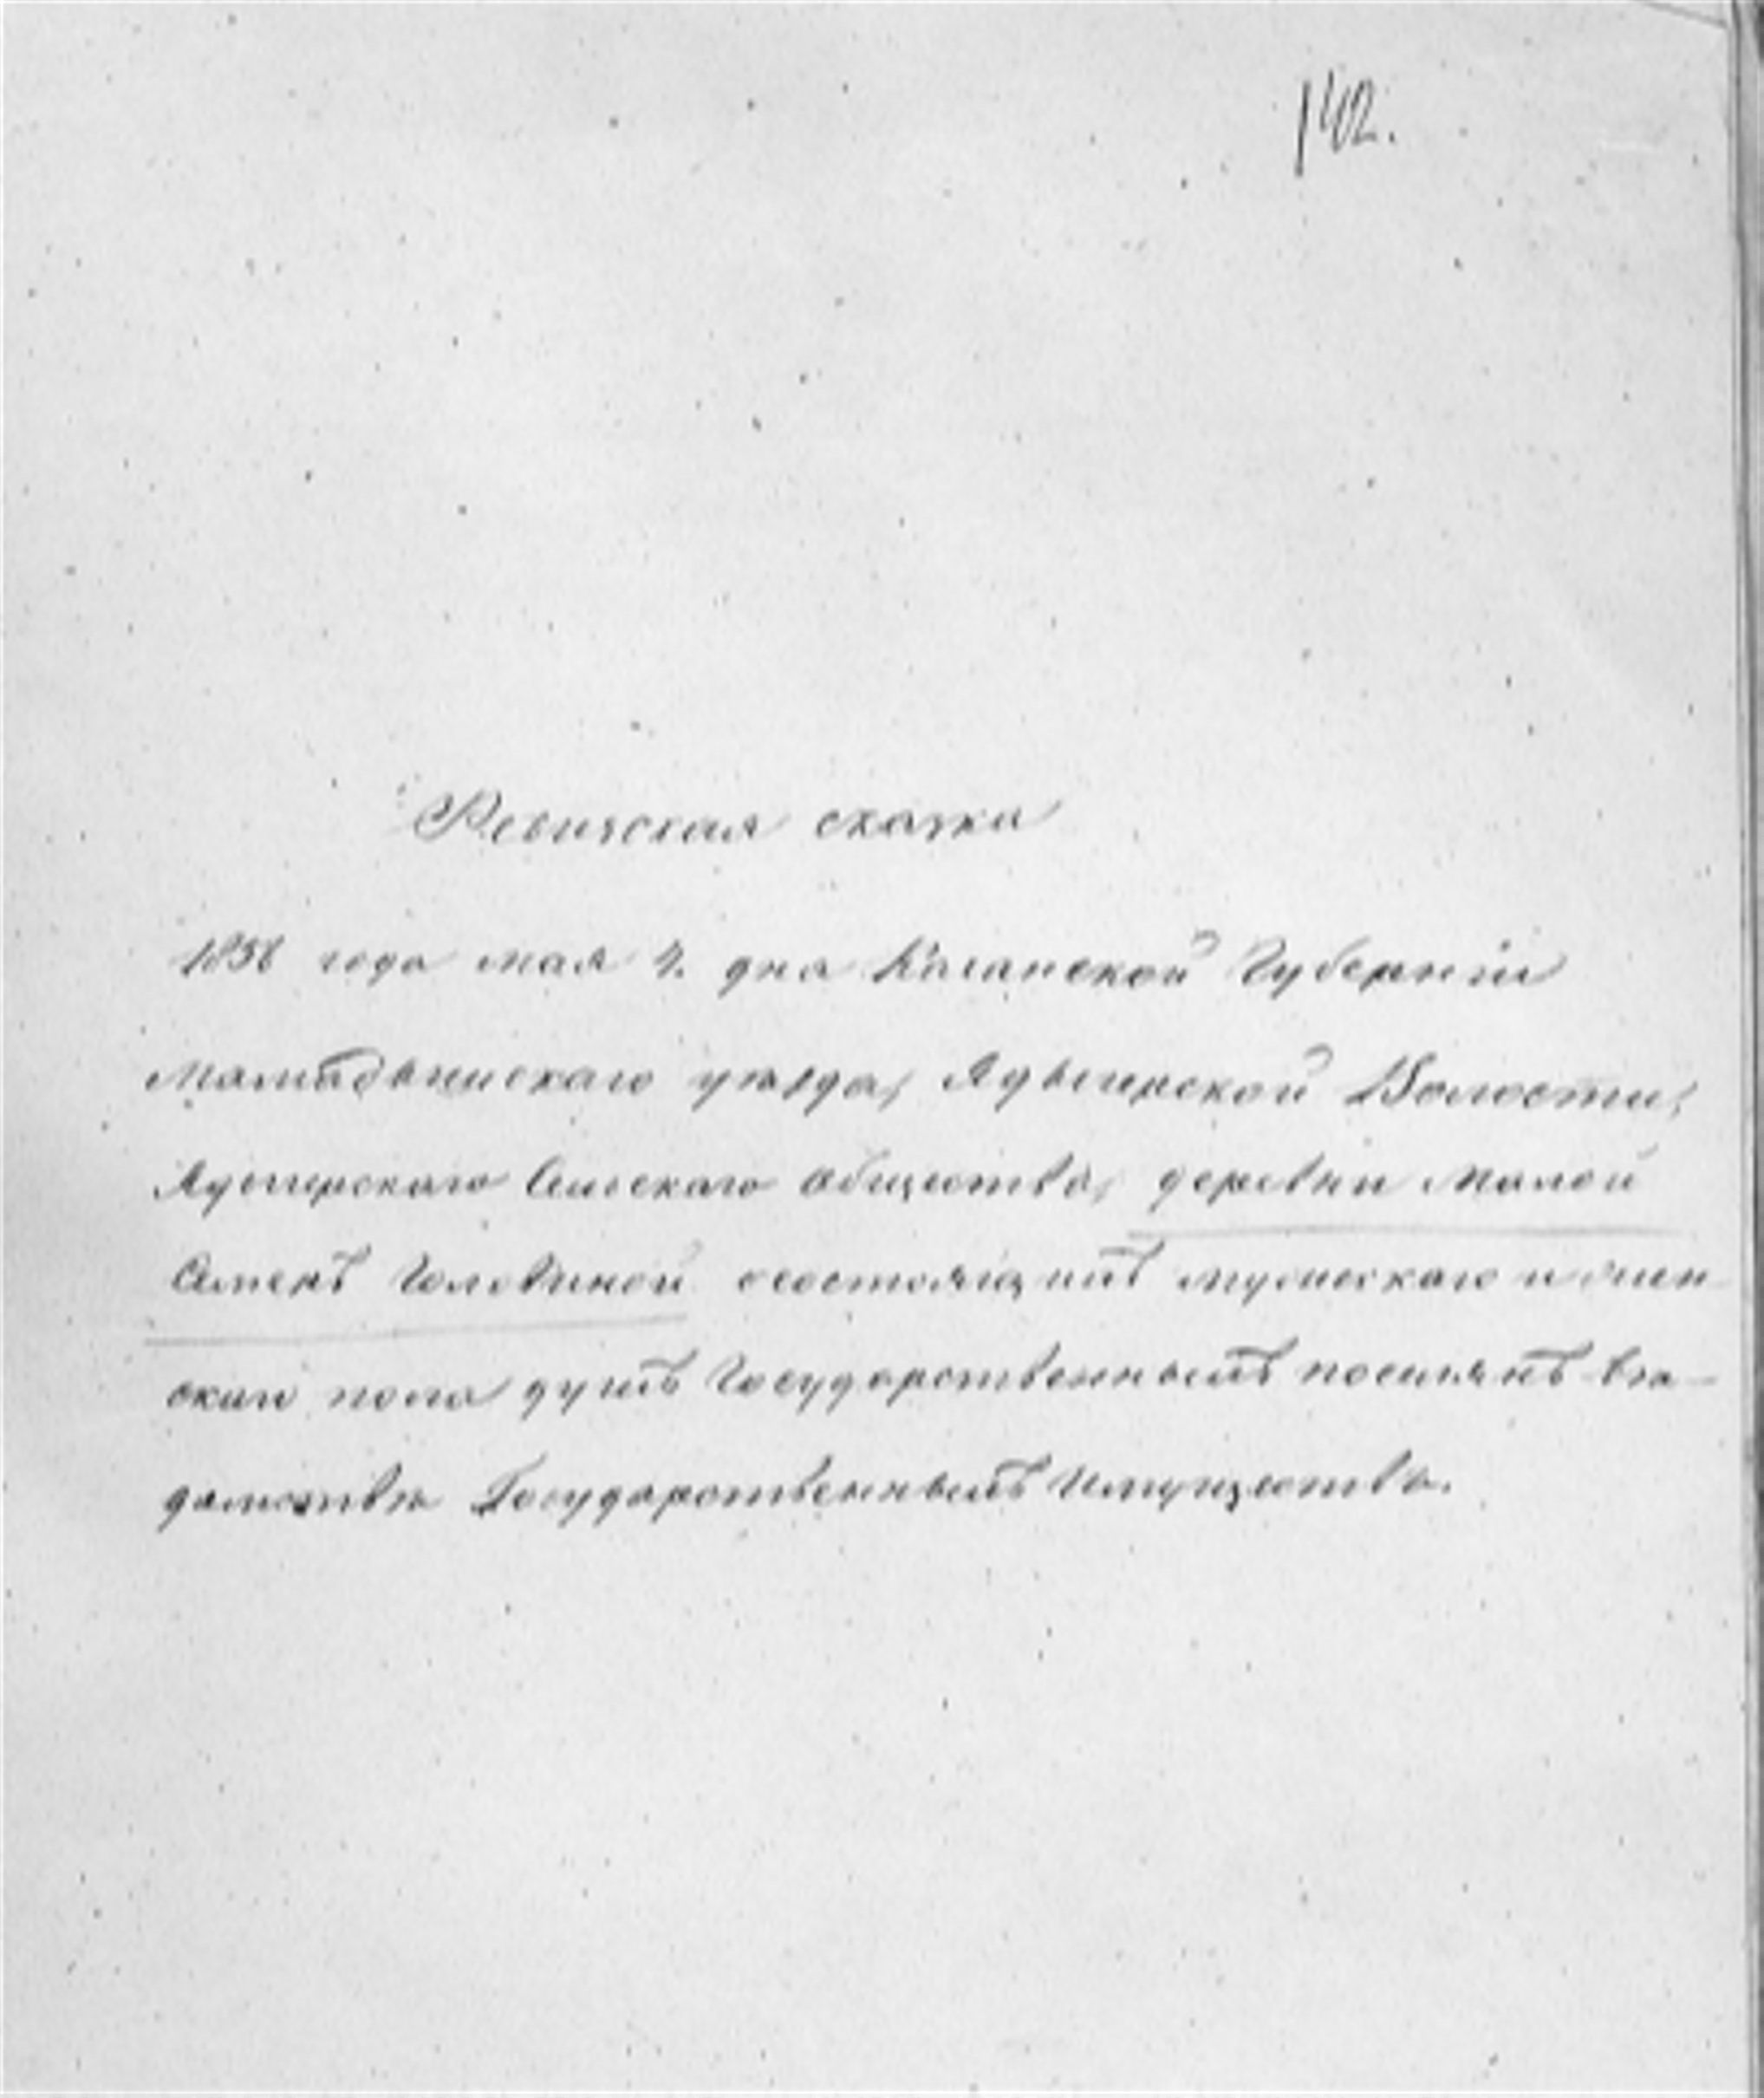 142.
Ревизская сказка
1858 года мая 4. дня Казанской Губерніи
Мамадышскаго уѣзда, Ядыгерской Волости,
Ядыгерскаго Сельскаго общества, деревни Малой
Семенъ Головиной состоящихъ мужескаго и жен-
скаго пола душъ Государственныхъ поселянъ вѣ-
домствѣ Государственныхъ Имуществъ.